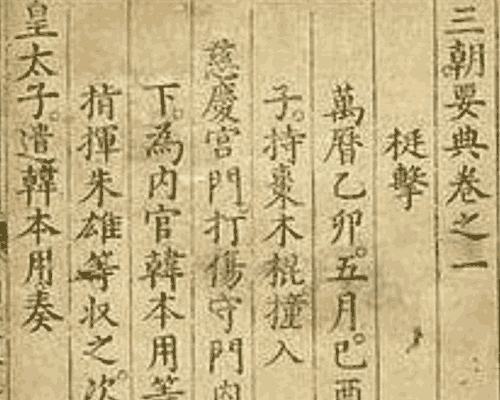 三朝要典卷之一
梃擊
萬曆乙卯。五月。已酉
子。持棗木棍撞入
慈慶宮門。打傷守門内
下。為内官韓本用等
指揮朱雄等収之。次
皇太子。遣韓本用奏